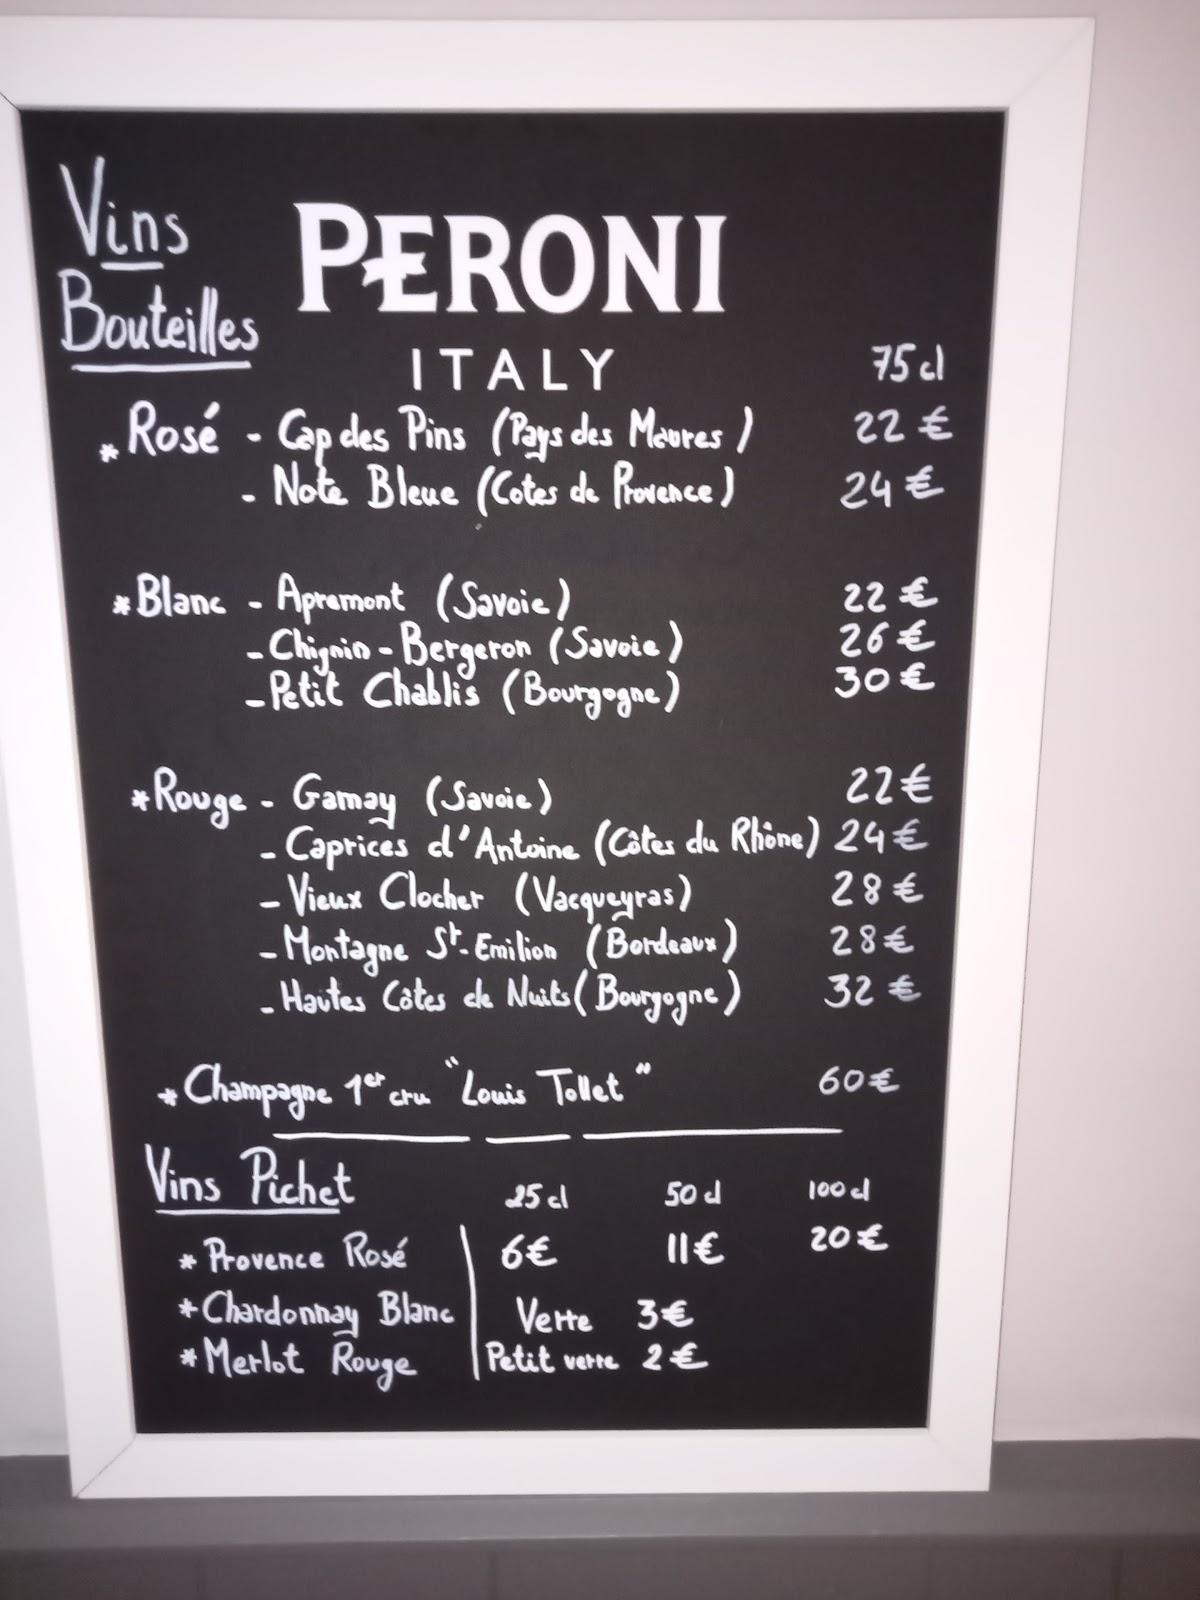 Vins
Bouteilles
PERONI
ITALY
75 cl
* Rosé - Cap des Pins (Pays des Maures) 22 €
- Note Bleue (Cotes de Provence) 24 €
* Blanc - Apremont (Savoie) 22 €
- Chignin-Bergeron (Savoie) 26 €
- Petit Chablis (Bourgogne) 30 €
* Rouge - Gamay (Savoie) 22 €
- Caprices d'Antoine (Côtes du Rhône) 24 €
- Vieux Clocher (Vacqueyras) 28 €
- Montagne St-Emilion (Bordeaux) 28 €
- Hautes Côtes de Nuits (Bourgogne) 32 €
* Champagne 1er cru "Louis Tollet" 60 €
Vins Pichet 25 cl 50 cl 100 cl
* Provence Rosé 6€ 11€ 20€
* Chardonnay Blanc Verre 3€
* Merlot Rouge Petit verre 2€